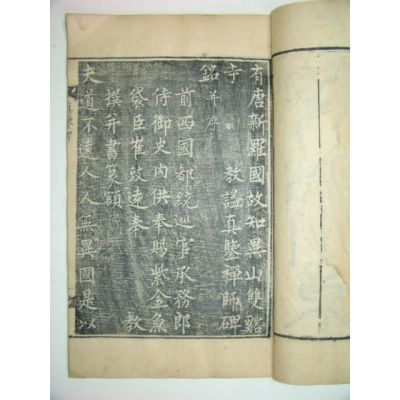 有唐新羅國故知異山雙谿
寺 教謚真鑒禪師碑
銘并序
前西國都統巡官承務郎
侍御史內供奉賜紫金魚
袋臣崔致遠奉 教
撰并書篆額
夫道不遠人人無異國是以